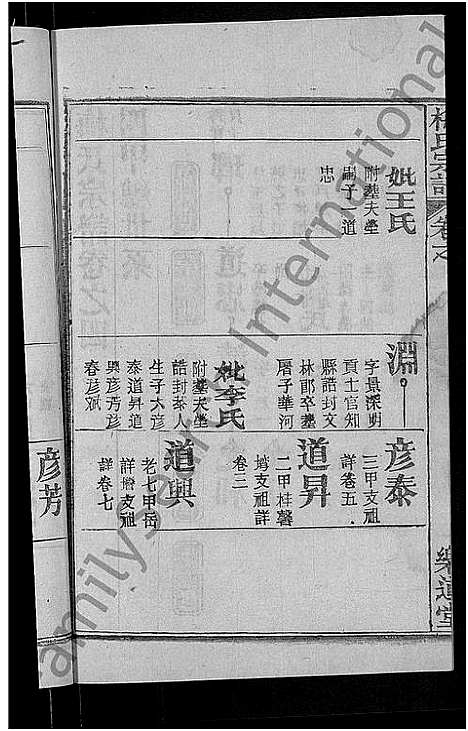 楊氏宗譜
卷之
樂道堂
妣王氏
附葬夫塋
嗣子一道
忠
淵
字景深明
貢士官知
縣誥封文
林郎卒塟
厝子華河
妣李氏
附塟夫塋
誥封孺人
生子六彦
泰道昇道
興彦芳彦
春彦斌
彦泰
三甲支祖
詳卷五
道昇
二甲桂馨
塆支祖詳
卷三
道興
老七甲岳
詳卷七
彦芳
Family
International